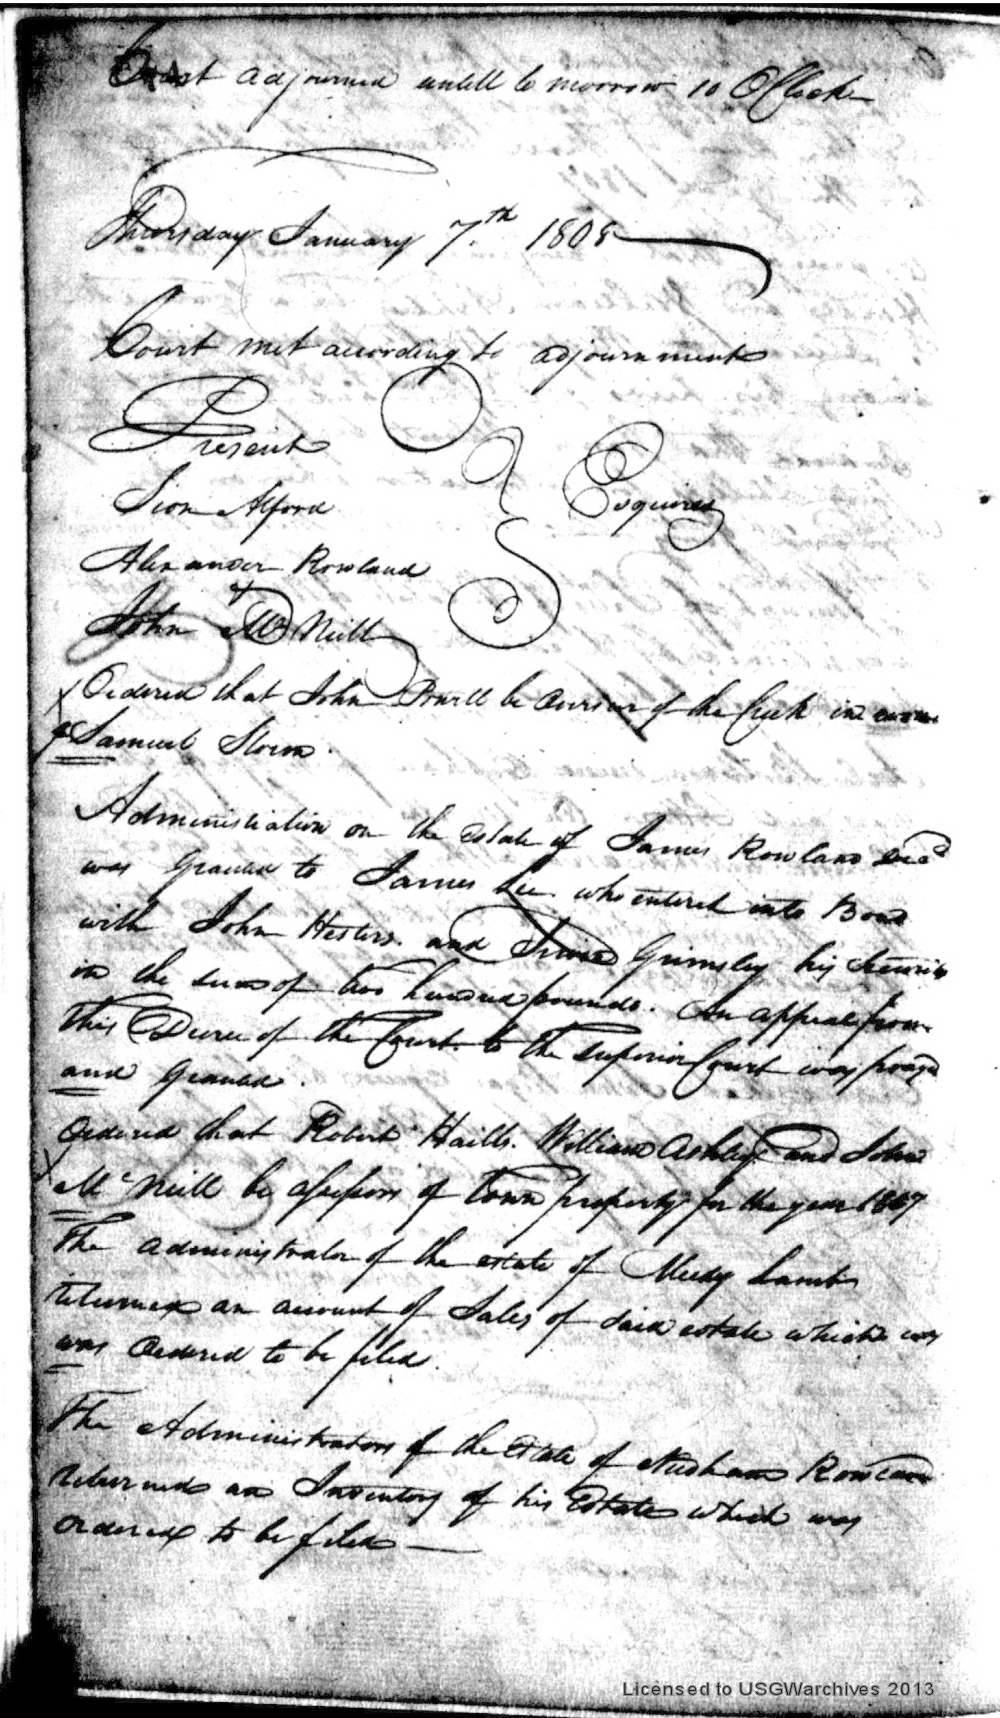 Court adjourned untill to morrow 10 OClock
Thursday January 7.th 1808
Court met according to adjournment
Present
Sion Alford
Esquires
Alexander Rowland
John McNeill
Ordered that John Powell be overseer of the Creek in
of Samuel
Administration on the estate of James Rowland Decd
was Granted to James Lee who entered into Bond
with John Hesters and Grimsley his
in the sum of two hundred pounds. An appeal from
this Decree of the Court to the superior Court was prayd
and Granted.
Ordered that Robert Haills. William Ashley and John
McNeill be assessors of town property for the year 1807
The administrator of the estate of Meedy Lamb
returned an account of Sales of said estate which was
was Ordered to be filed.
The Administrators of the Estate of Needham Rowland
Returned an Inventory of his Estate which was
ordered to be filed
Licensed to USGWarchives 2013